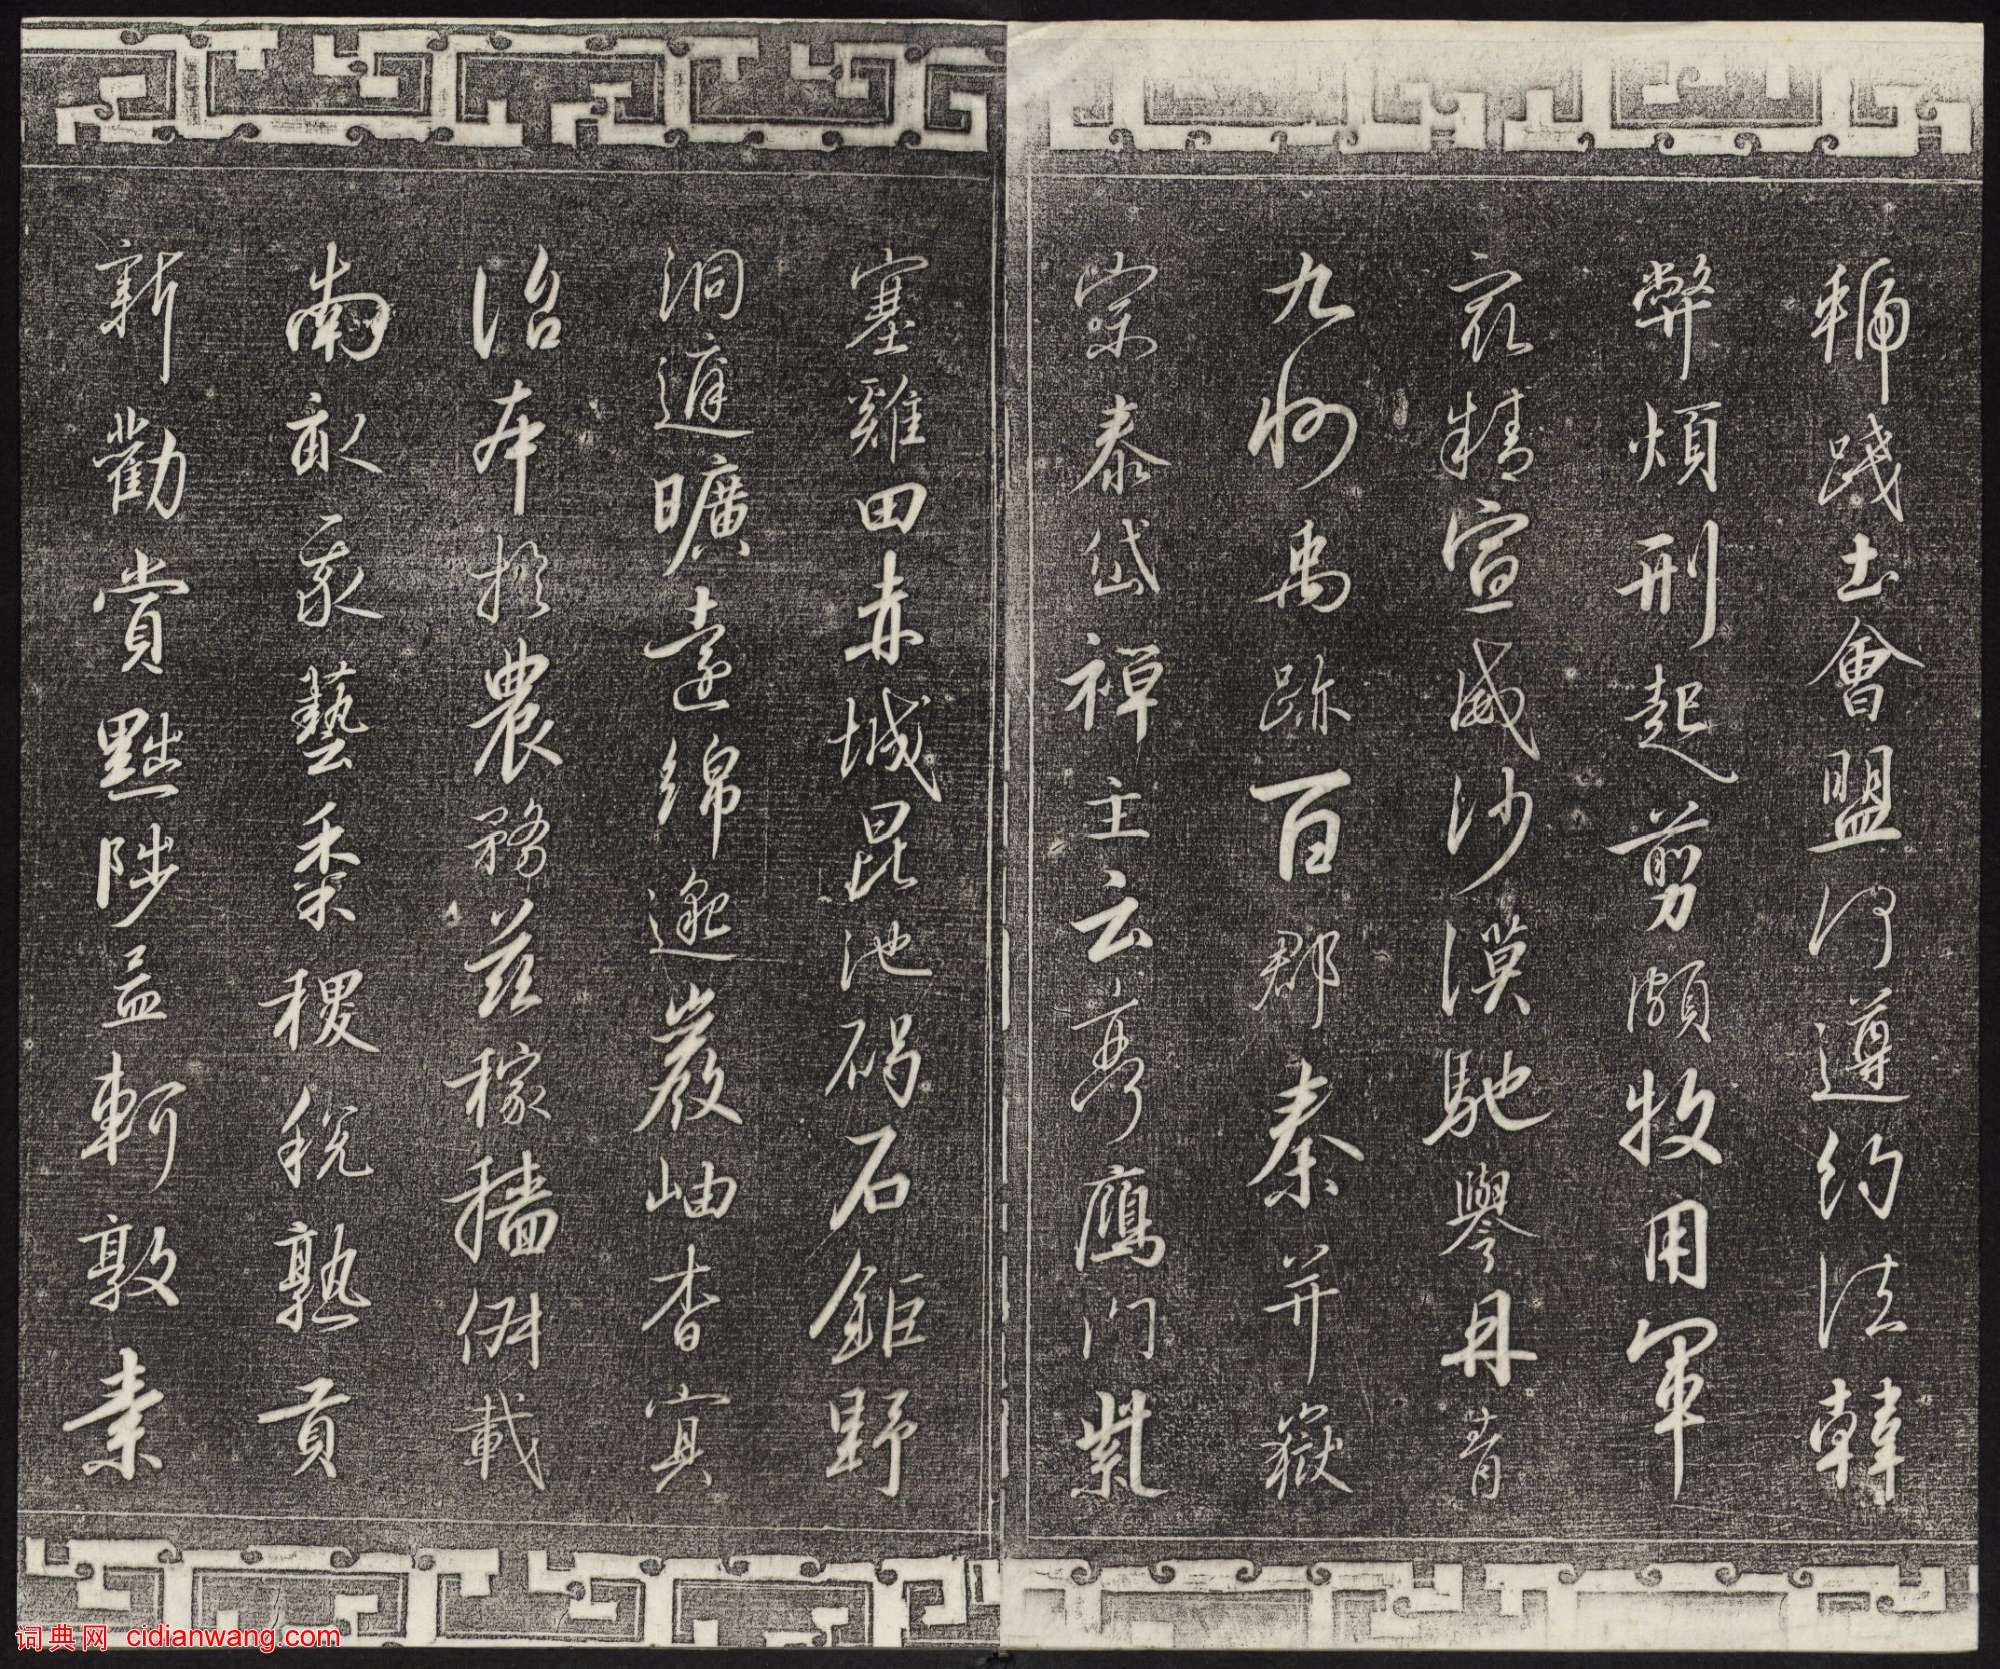 虢踐土會盟何遵約法韓
弊煩刑起剪頗牧用軍
最精宣威沙漠馳譽丹青
九州禹跡百郡秦并嶽
宗泰岱禪主云亭鴈門紫
塞雞田赤城昆池碣石鉅野
洞庭曠遠綿邈巖岫杳冥
治本於農務茲稼穡俶載
南畝我藝黍稷稅熟貢
新勸賞黜陟孟軻敦素
词典网 cidianwang.com